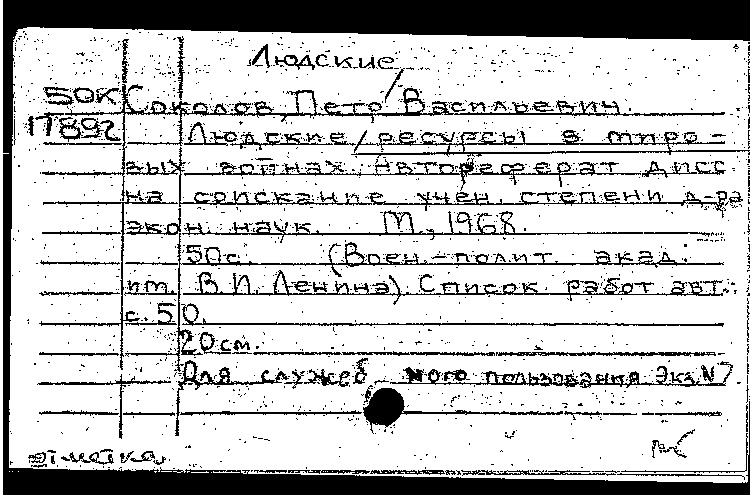 Людские
50К Соколов, Петр Васильевич.
17892 Людские/ресурсы в миро-
вых войнах. Автореферат дисс.
на соискание учен. степени д-ра
экон. наук. М., 1968.
50с. (Воен.-полит. акад.
им. В.И. Ленина). Список работ авт.:
с. 50.
20см.
Для служебного пользования Экз.N7.
отметка